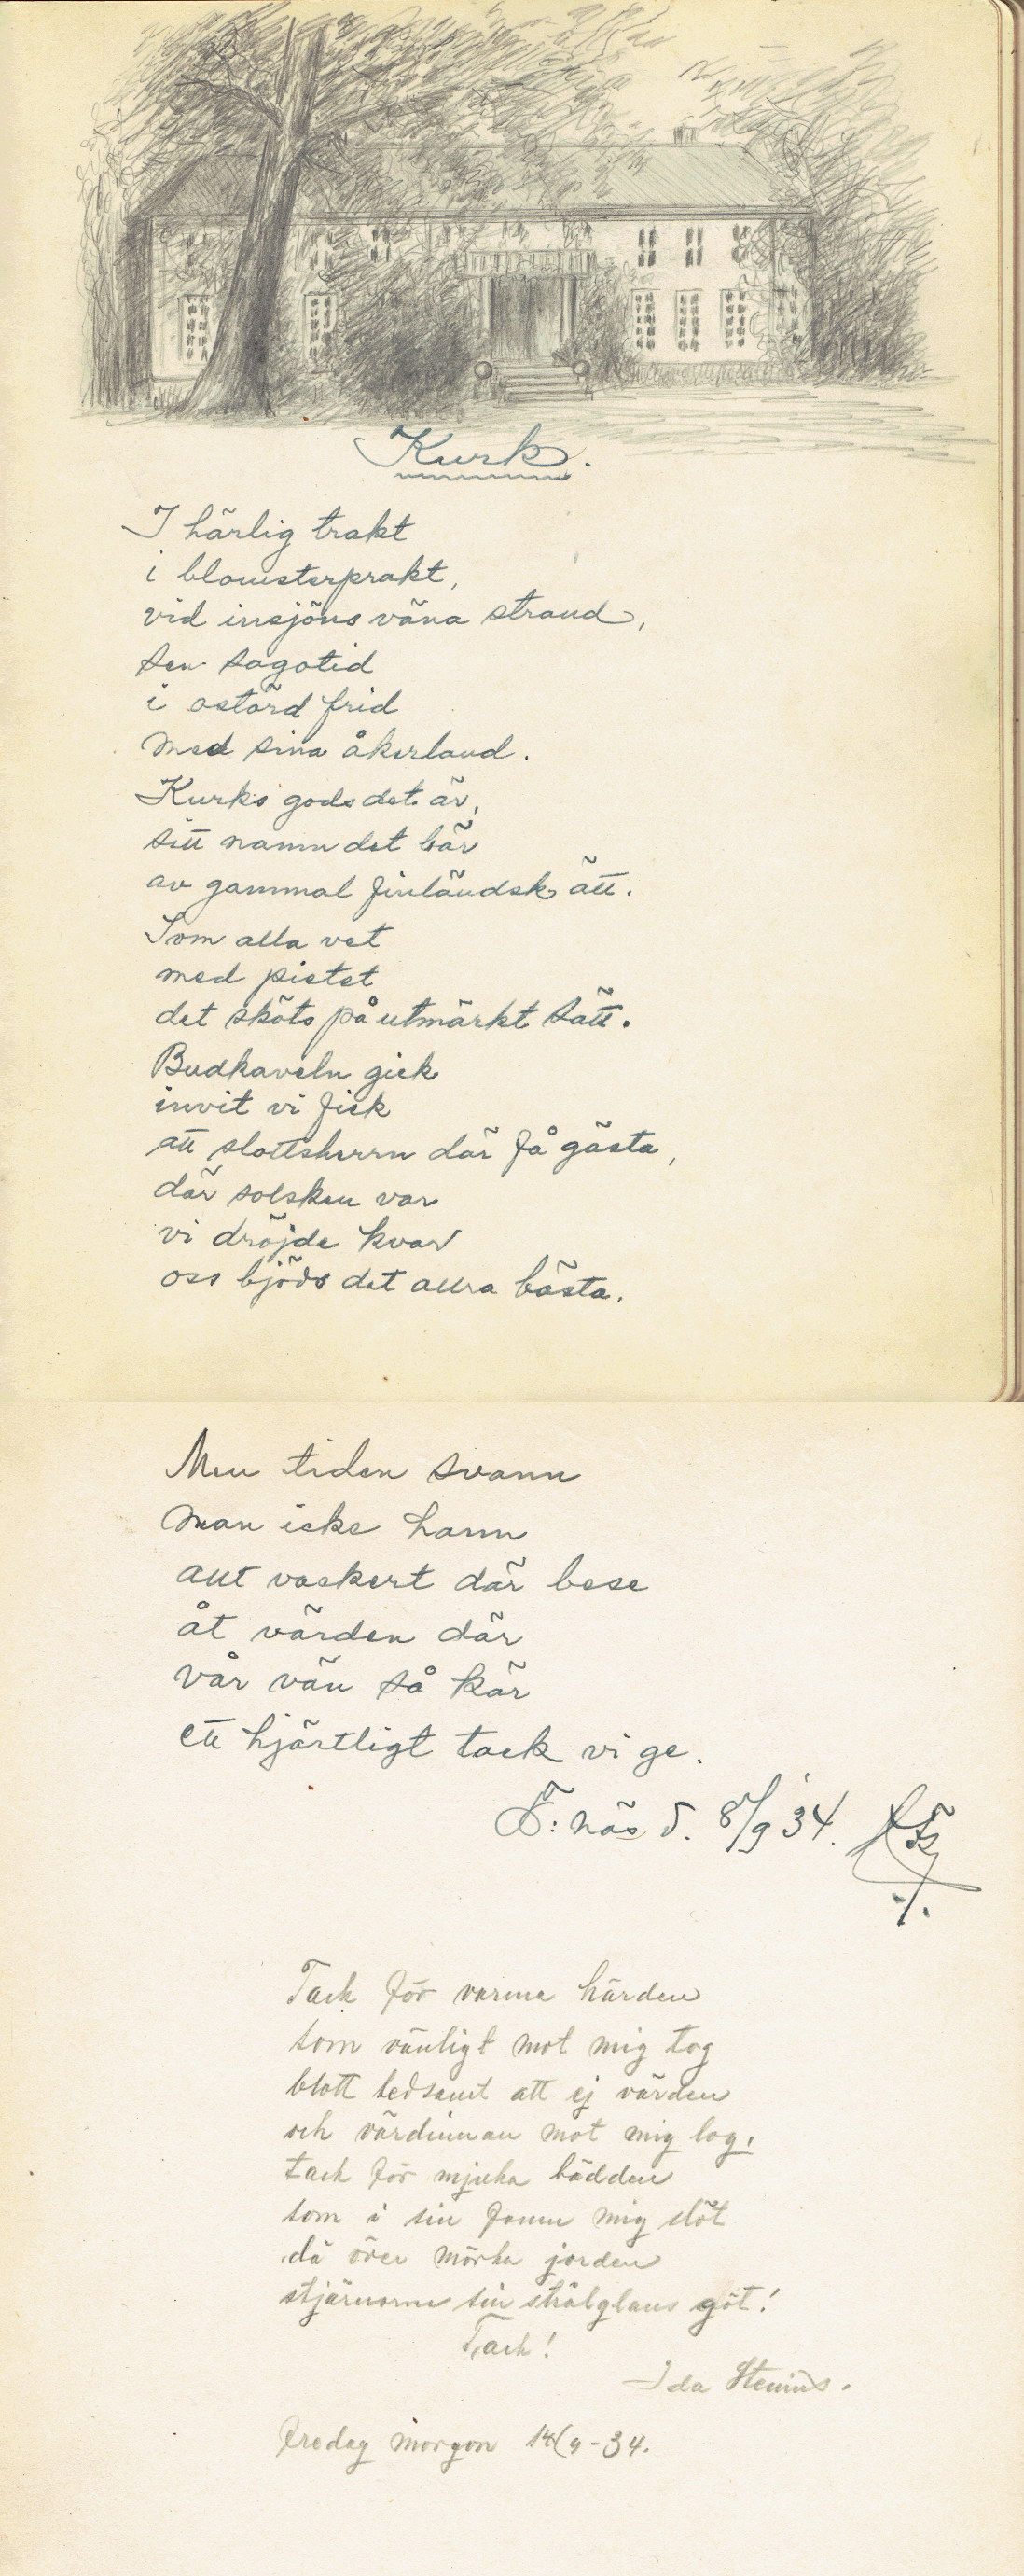 Kurk.
I härlig trakt
i blomsterprakt,
vid insjöns väna strand,
sen sagotid
i ostörd frid
med sina åkerland.
Kurks gods det är,
sitt namn det bär
av gammal finländsk ätt.
Som alla vet
med pietet
det sköts på utmärkt sätt.
Budkaveln gick
invit vi fick
att slottsherrn där få gästa,
där solsken var
vi dröjde kvar
oss bjöds det allra bästa.
Men tiden svann
man icke hann
allt vackert där bese
åt värden där
vår vän så kär
ett hjärtligt tack vi ge.
F:näs d. 8/9 34.
./.
Tack för varma härden
som vänligt mot mig tog
blott ledsamt att ej värden
och värdinnan mot mig log,
tack för mjuka bädden
som i sin famn mig slöt
då över mörka jorden
stjärnorna sin strålglans göt!
Tack!
Ida Stenius.
fredag morgon 14/9-34.